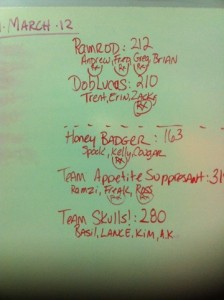 . MARCH . 12
RAMROD : 212
Andrew, Fern, Greg, BRIAN
Rx Rx Rx
DobLucas : 210
Trent, Erin, Zack
Rx
Honey BADGER : 163
Spook, Kelly, Cougar
Rx
TEAM Appetite Suppresant : 31
Ramzi, Freak, Ross
Rx Rx
TEAM SKULLS! : 280
BASIL, LANCE, Kim, A.K.